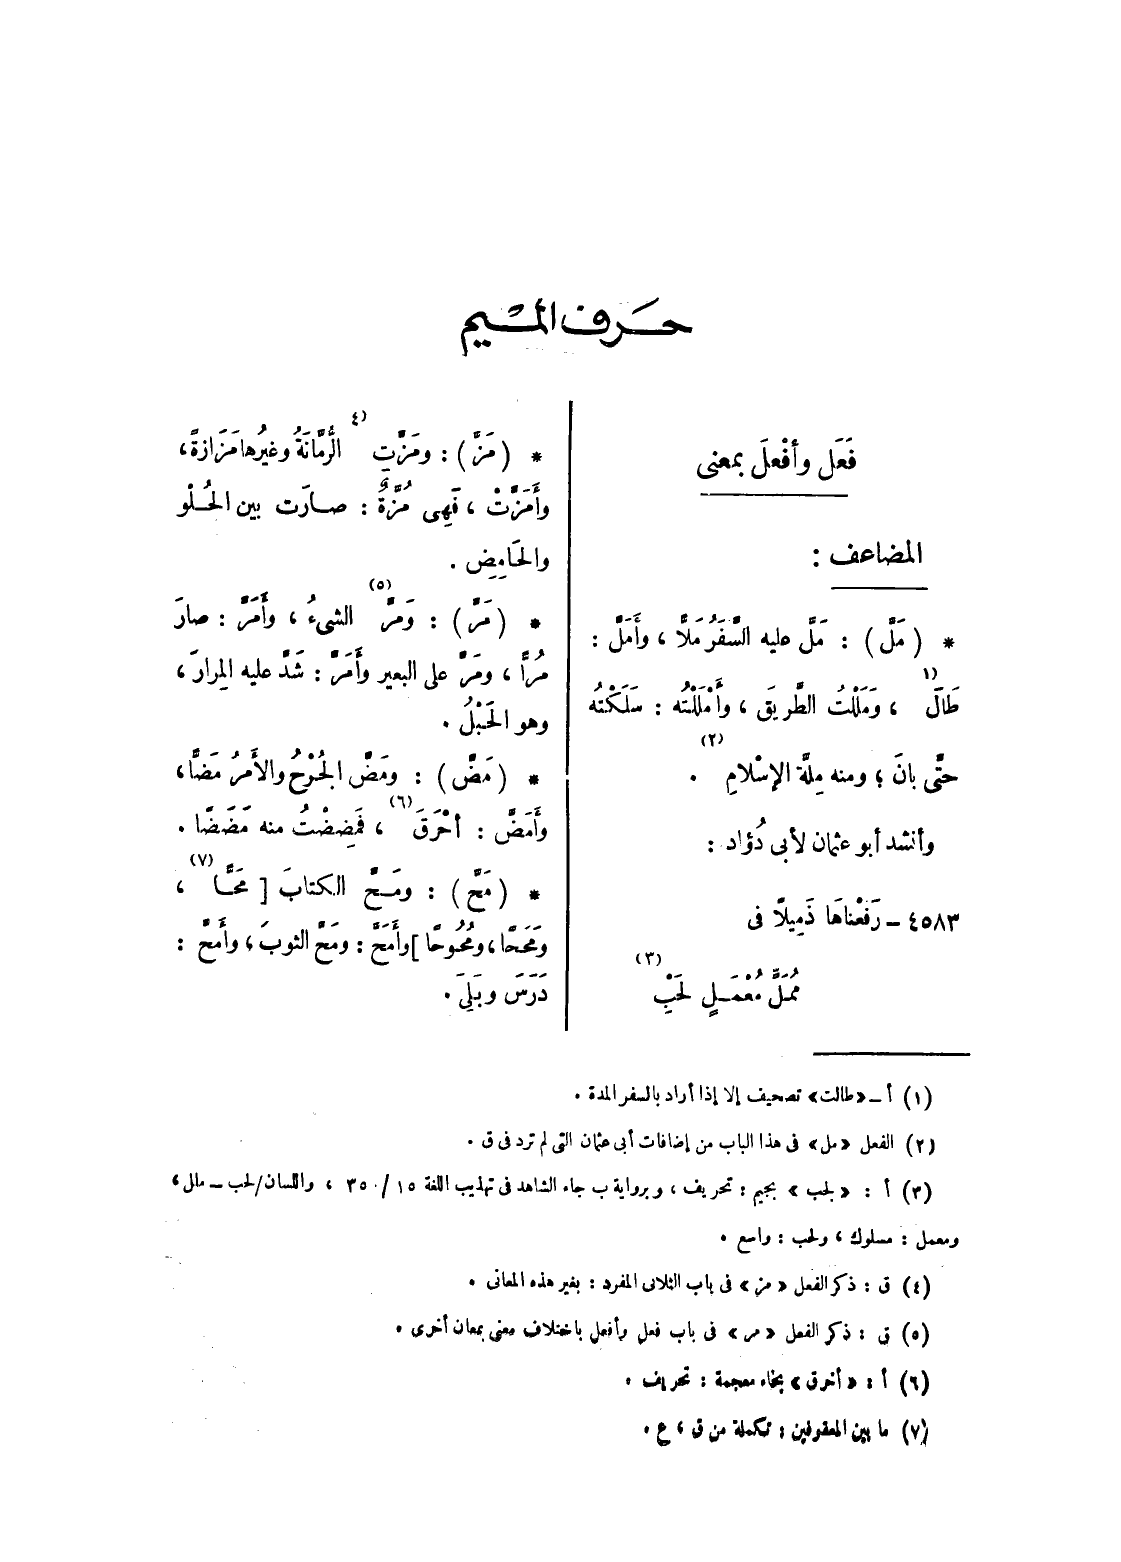 حَرف الميم
فَعَل وأفْعلَ بمعنى
المضاعف :
* ( مَلَّ ) : مَلَّ عليه السَّفَرُ مَلاًّ ، وأَمَلَّ :
طَالَ (١) ، وَمَلَلْتُ الطَّريَق ، وأَمْلَلْتُه : سَلَكْتُه
حتَّى بانَ ؛ ومنه مِلَّة الإسْلامِ (٢) .
وأنشد أبو عثمان لأبى دُؤاد :
٤٥٨٣ – رَفَعْنَاهَا ذَمِيلاً فى
مُمَلٍّ مُعْمَلٍ لَحْبِ (٣)
* ( مَزَّ ) : ومَزَّتِ (٤) الرُّمَّانَةُ وغيرُها مَزَازةً ،
وأَمَزَّتْ ، فَهِى مُزَّةٌ : صارَت بين الحُلْو
والحَامِضِ .
* ( مَرَّ ) : وَمَرَّ (٥) الشىءُ ، وأَمَرَّ : صارَ
مُرًّا ، ومَرَّ على البعير وأَمَرَّ : شَدَّ عليه المِرارَ ،
وهو الحَبْلُ .
* ( مَضَّ ) : ومَضَّ الجُرْحُ والأَمرُ مَضًّا ،
وأَمَضَّ : أحْرَقَ (٦) ، فَمِضِضْتُ منه مَضَضًا .
* ( مَحَّ ) : ومَحَّ الكتابَ [ مَحًّا (٧) ،
ومَحَحًا ، ومُحُوحًا ] وأَمَحَّ : ومَحَّ الثوبَ ، وأَمَحَّ :
دَرَسَ وبَلِىَ .
(١) أ – «طالت» تصحيف إلا إذا أراد بالسفر المدة .
(٢) الفعل «مل» فى هذا الباب من إضافات أبى عثمان التى لم ترد فى ق .
(٣) أ : «لجب» بجيم : تحريف ، وبرواية ب جاء الشاهد فى تهذيب اللغة ١٥ / ٣٥٠ ، واللسان/لحب – ملل ،
ومعمل : مسلوك ، ولحب : واسع .
(٤) ق : ذكر الفعل «مز» فى باب الثلاثى المفرد : بغير هذه المعانى .
(٥) ق : ذكر الفعل «مر» فى باب فعل وأفعل باختلاف معنى بمعان أخرى .
(٦) أ : «أخرق» بخاء معجمة : تحريف .
(٧) ما بين المعقوفين : تكملة من ق ، ع .